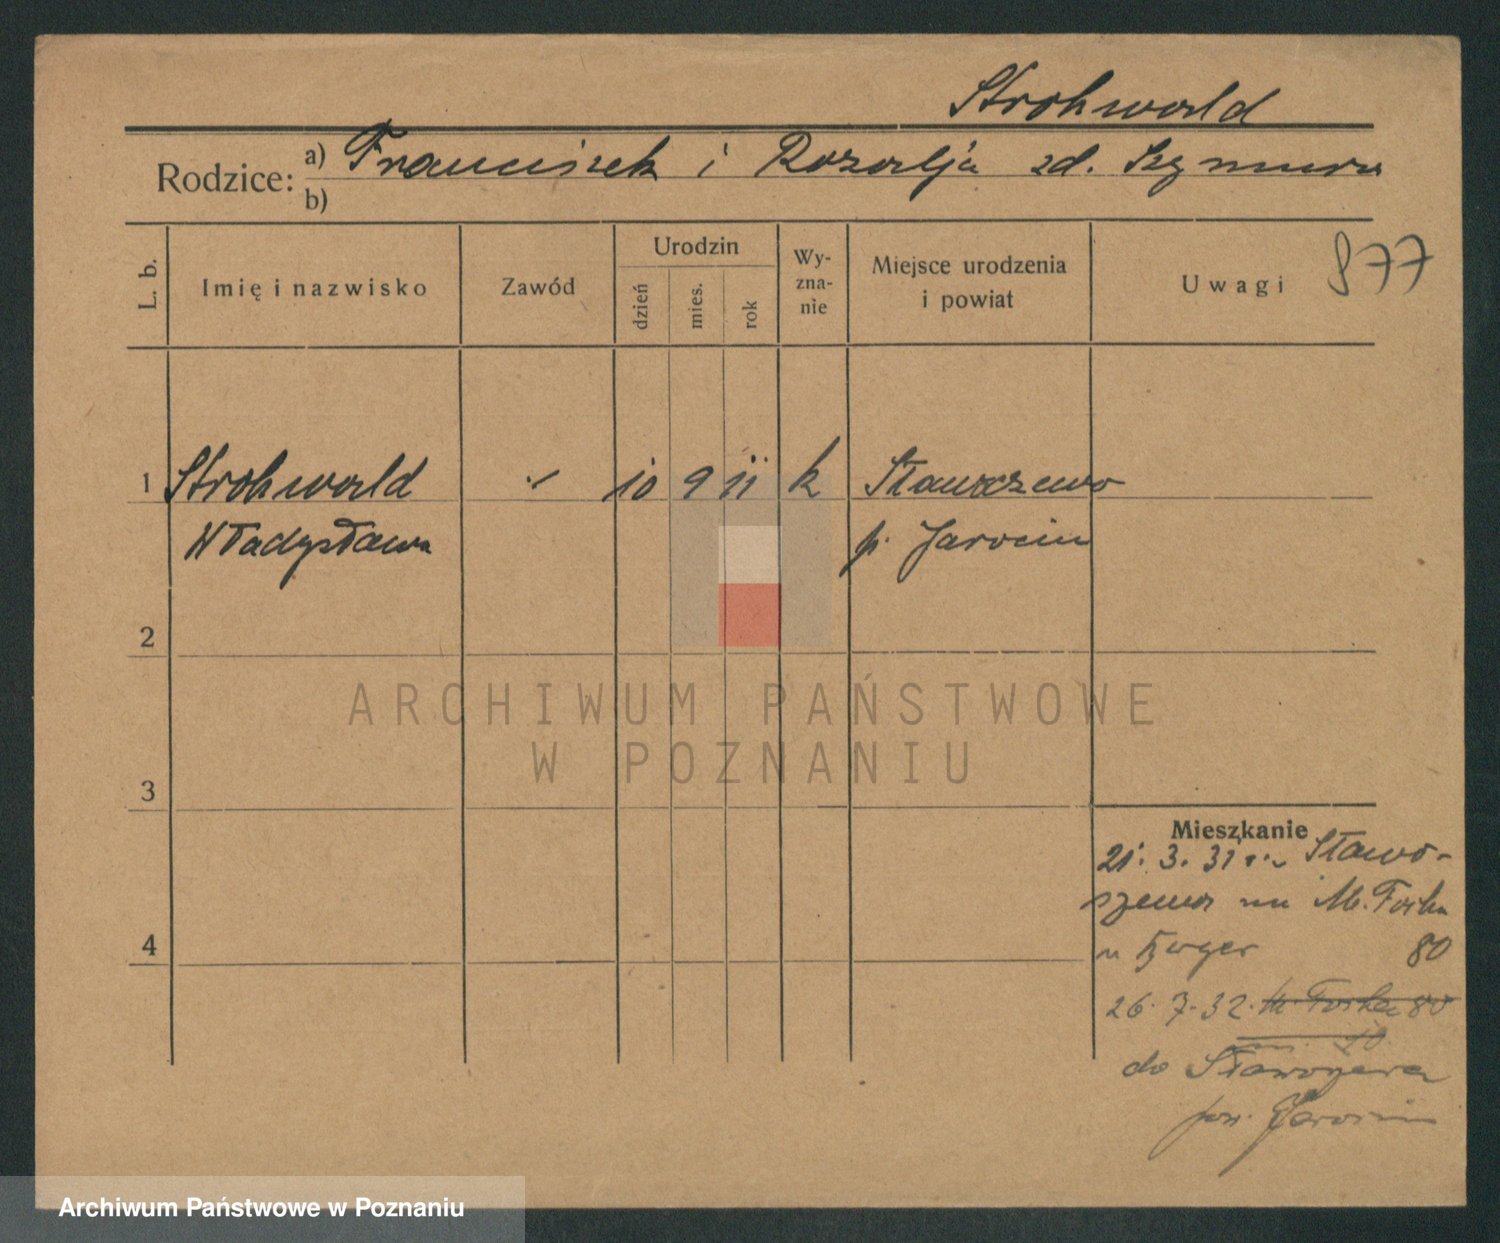 Strohwald
Rodzice: a) Franciszek i Rozalja zd. Szymura
b)
L. b.
Imię i nazwisko
Zawód
Urodzin
dzień
mies.
rok
Wy-
zna-
nie
Miejsce urodzenia
i powiat
Uwagi
877
1 Strohwald 10 9 11 k
Władysława p. Jarocin
2
3
4
ARCHIWUM PAŃSTWOWE
W POZNANIU
Mieszkanie
21. 3. 31 Stawo-
szewa M. Focha
80
26. 7. 32. M. Focha 80
do
pow. Jarocin
Archiwum Państwowe w Poznaniu